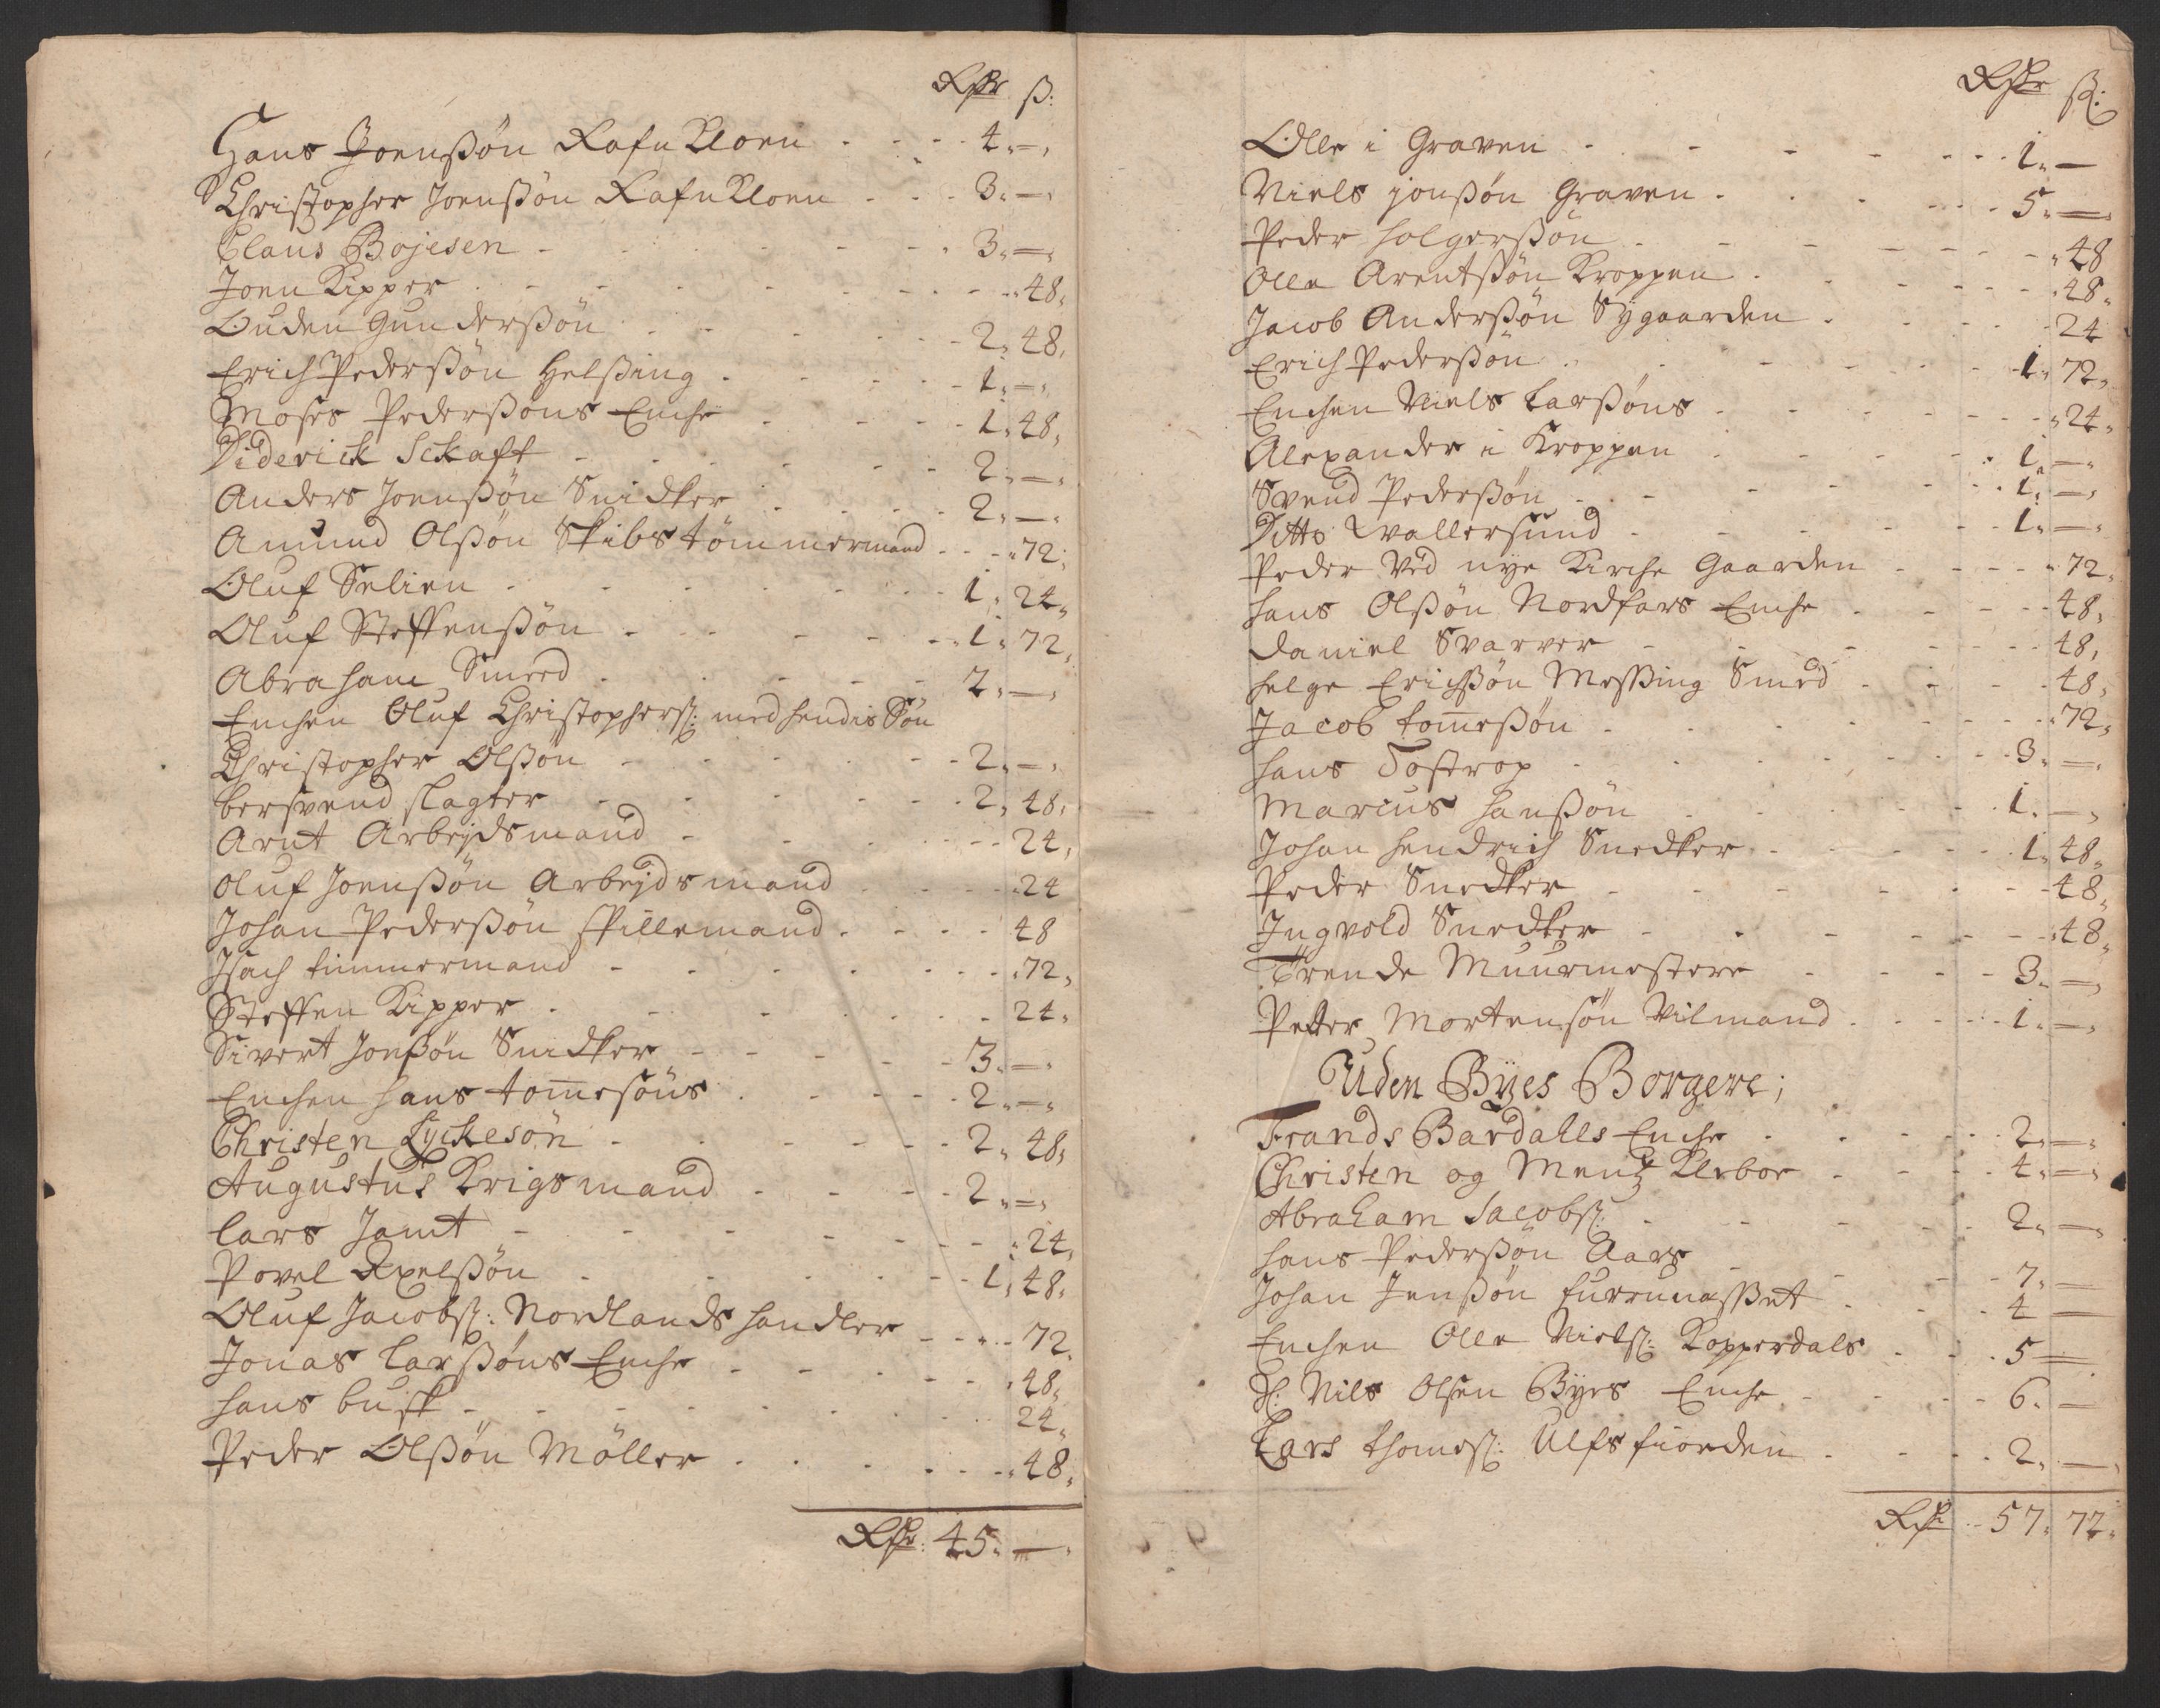 Rdr ß:
Hans Joensßön Rafn Kloen - - - 4. —.
Christopher Joensßön Rafn Kloen - - 3. —.
Claus Bojesen - - - 3. —.
Joen Kipper - - - 48.
Ouden Gunderßön - - - 2. 48.
Erich Pederßön Helßing - - - 1. —.
Moses Pederßöns Enche - - - 1. 48.
Diderick Sckaft - - - 2. —.
Anders Joenßön Snidker - - - 2. —.
Amund Olßön Skibstömmermand - - - 72.
Oluf Selien - - - 1. 24.
Oluf Steffenßön - - - 1. 72.
Abraham Smed - - - 2. —.
Enchen Oluf Christophers: med hendis Sön
Christopher Olßön - - - 2. —.
bersvend slagter - - - 2. 48.
Arnt Arbejdsmand - - - 24.
Oluf Joenßön Arbejdsmand - - - 24
Johan Pederßön spillemand - - - 48
Isach timmermand - - - 72.
Steffen Kipper - - - 24.
Sivert Jonßön Snidker - - - 3. —.
Enchen Hans tom̄esöns - - - 2. —.
Christen Lyckesön - - - 2. 48.
Augustus Krigsmand - - - 2. —.
Lars Jamt - - - 24.
Povel Axelßön - - - 1. 48.
Oluf Jacobs: Nordlands handler - - - 72.
Jonas Larßöns Enche - - - 48.
Hans busk - - - 24.
Peder Olßön Möller - - - 48.
Rdr: 45. —.
Rdr ß:
Olle i Graven - - - 1. —
Niels jonßön Graven - - - 5. —.
Peder Holgerßön - - - 48
Olle Arentßön Kroppen - - - 48.
Jacob Anderßön Sygaarden - - - 24
Erich Pederßön - - - 1. 72.
Enchen Niels Larßöns - - - 24.
Alexander i Kroppen - - - 1. —.
Svend Pederßön - - - 1. —.
Ditto Vallersund - - - 1. —.
Peder Ved nye Kirche Gaarden - - - 72.
Hans Olßön Nordfars Enche - - - 48.
Daniel Svarver - - - 48.
Helge Erichßön Messing Smed - - - 48.
Jacob tom̄eßön - - - 72.
Hans Tostrop - - - 3. —.
Marcus Hanßön - - - 1. —.
Johan Hendrich Snedker - - - 1. 48.
Peder Snedker - - - 48.
Ingvold Snedker - - - 48.
Trende Muurmestere - - - 3. —.
Peder Mortensön Vilmand - - - 1. —.
Uden Byes Borgere;
Frands Bardahls Enche - - - 2. —.
Christen og Mentz Klebor - - - 4. —.
Abraham Jacobs: - - - 2. —.
Hans Pederßön Aars - - - 7. —
Johan Jenßön furrunæsset - - - 4 —
Enchen Olle Niels: Kopperdals - - - 5 —
Sl: Nils Olsen Byes Enche - - - 6. —
Lars Thomes: Ulfsfiorden - - - 2. —.
Rdr - - 57. 72.